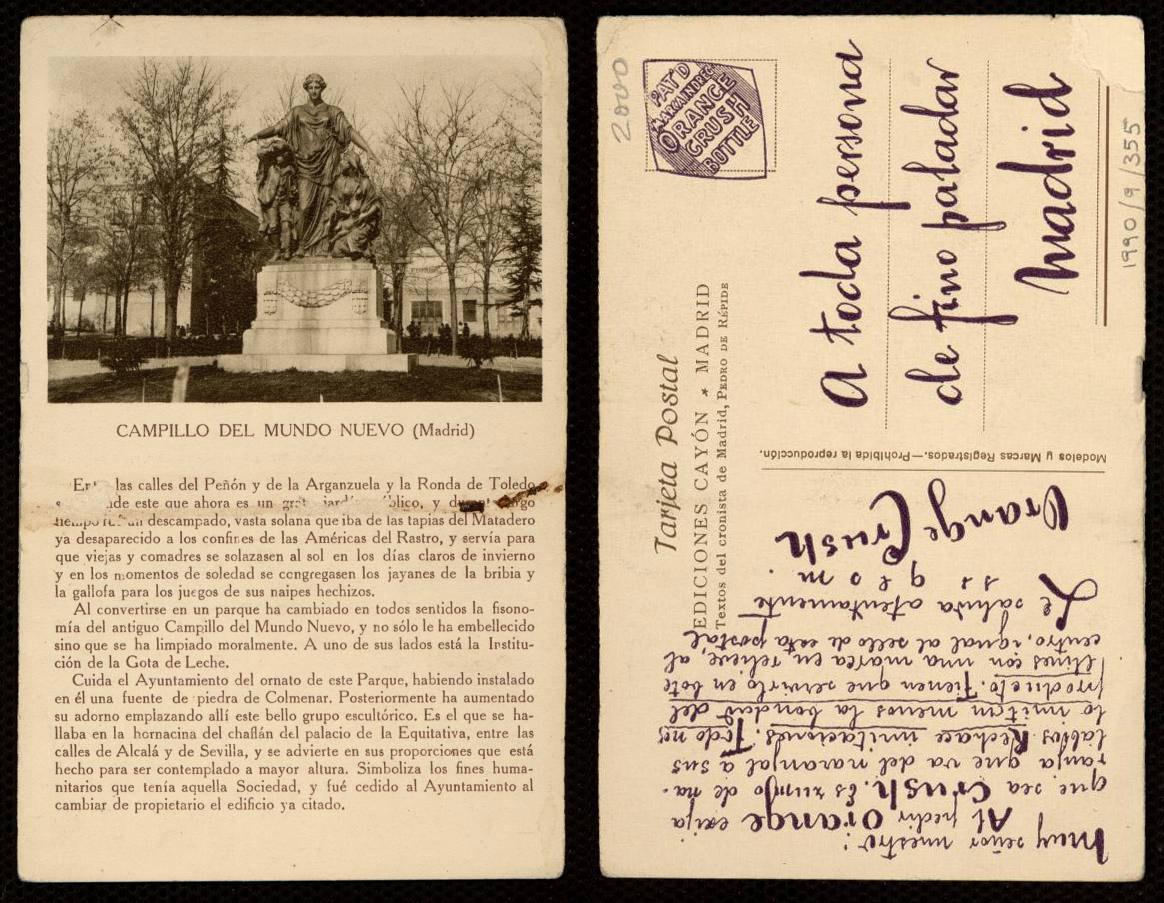 CAMPILLO DEL MUNDO NUEVO (Madrid)
las calles del Peñón y de la Arganzuela y la Ronda de Toledo
este que ahora es un
descampado, vasta solana que iba de las tapias del Matadero
ya desaparecido a los confines de las Américas del Rastro, y servía para
que viejas y comadres se solazasen al sol en los días claros de invierno
y en los momentos de soledad se congregasen los jayanes de la bribia y
la gallofa para los juegos de sus naipes hechizos.
Al convertirse en un parque ha cambiado en todos sentidos la fisono-
mía del antiguo Campillo del Mundo Nuevo, y no sólo le ha embellecido
sino que se ha limpiado moralmente. A uno de sus lados está la Institu-
ción de la Gota de Leche.
Cuida el Ayuntamiento del ornato de este Parque, habiendo instalado
en él una fuente de piedra de Colmenar. Posteriormente ha aumentado
su adorno emplazando allí este bello grupo escultórico. Es el que se ha-
llaba en la hornacina del chaflán del palacio de la Equitativa, entre las
calles de Alcalá y de Sevilla, y se advierte en sus proporciones que está
hecho para ser contemplado a mayor altura. Simboliza los fines huma-
nitarios que tenía aquella Sociedad, y fué cedido al Ayuntamiento al
cambiar de propietario el edificio ya citado.
2000
PAT'D
MARCA IND REG
ORANGE
CRUSH
BOTTLE
Tarjeta Postal
EDICIONES CAYÓN * MADRID
Textos del cronista de Madrid, PEDRO DE RÉPIDE
A toda persona
de fino paladar
Madrid
1990/9/355
Modelos y Marcas Registrados.—Prohibida la reproducción.
Muy señor nuestro:
Al pedir Orange exija
que sea Crush. Es zumo de na-
ranja que va del naranjal a sus
labios. Rechace imitaciones. Todo nos
lo imitan menos la bondad del
producto. Tienen que servirlo en bote
llines con una marca en relieve, al
centro, igual al sello de esta postal
Le saluda atentamente
s s q e s m
Orange Crush